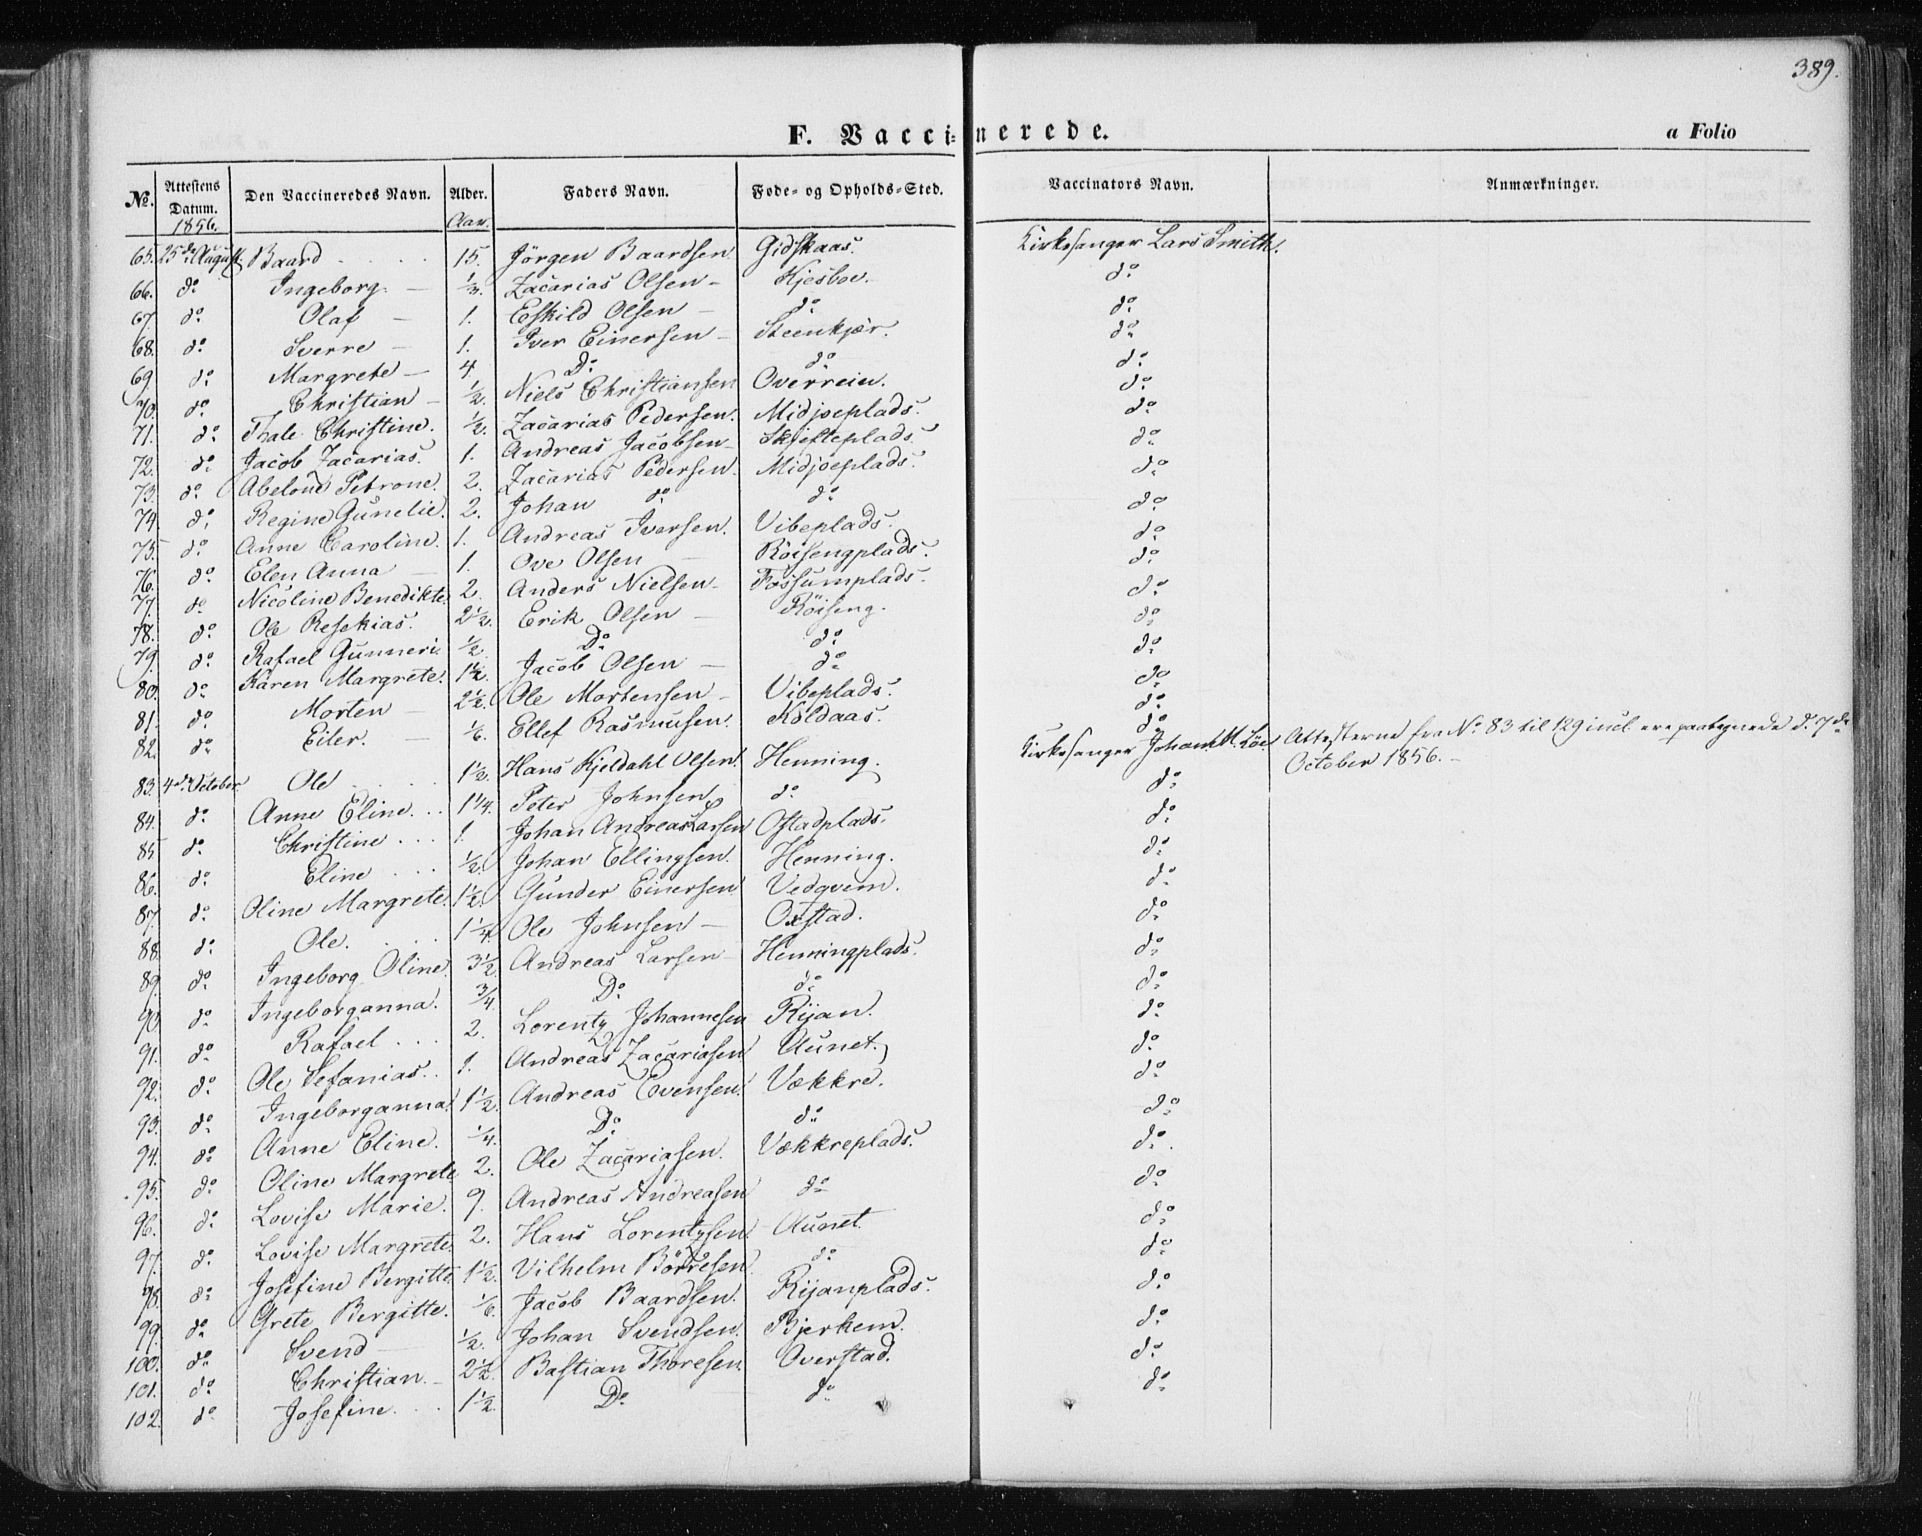 389.
F. Vaccinerede.
a Folio
No. Attestens Datum. Den Vaccineredes Navn. Alder. Faders Navn. Føde- og Opholds-Sted. Vaccinators Navn. Anmærkninger.
1856. Aar.
65. 25de August. Baard 15. Jörgen Baardsen. Gidskaas. Kirkesanger Lars Smith.
66. do Ingeborg. — 1/3. Zacarias Olsen — Kjesboe. do
67. do Olaf — 1. Eskild Olsen — do do
68. do Sverre — 1. Iver Einersen — Steenkjær. do
69. do Margrete — 4. Do do do
70. do Christian — 1/2. Niels Christiansen Overrein. do
71. do Thale Christine. 1/2. Zacarias Pedersen. Midjoeplads. do
72. do Jacob Zacarias. 1. Andreas Jacobsen — Skjefteplads. do
73. do Abelone Petrone. 2. Zacarias Pedersen. Midjoeplads. do
74. do Regine Gunelie. 2. Johan do do do
75. do Anne Caroline. 1. Andreas Iversen. Vibeplads. do
76. do Elen Anna — 1. Ove Olsen — Röisengplads. do
77. do Nicoline Benedikte. 2. Anders Nielsen — Fossumplads. do
78. do Ole Resekias. 2 1/2. Erik Olsen — Röiseng. do
79. do Rafael Gunneri. 1/2. Do do do
80. do Karen Margrete. 1 1/2. Jacob Olsen — do do
81. do Morten — 2 1/2. Ole Mortensen — Vibeplads. do
82. do Eiler. — 1/6. Ellef Rasmusen. Koldaas. do
83. 4de October Ole 1 1/2. Hans Kjeldahl Olsen. Henning. Kirkesanger Johan M. Löe Attesterne fra No 83 til 129 incl. ere paategnede d. 7de
October 1856. —
84. do Anne Eline. 1 1/4. Peter Johnsen do do
85 do Christine 1. Johan Andreas Larsen Ofstadplads. do
86. do Eline 1/2. Johan Ellingsen. Henning. do
87. do Oline Margrete. 1 1/2. Gunder Einersen Vedqvem. do
88. do Ole. 1 1/4. Ole Johnsen — Oxstad. do
89. do Ingeborg Oline. 3 1/2. Andreas Larsen — Henningplads. do
90. do Ingeborganna. 3/4. Do do do
91. do Rafael 2. Lorentz Johannesen Rijan. do
92. do Ole Sefanias. 1. Andreas Zacariasen Aunet. do
93. do Ingeborganna. 1 1/2. Andreas Evensen. Vækkre. do
94. do Anne Eline. 1/4. Do do do
95. do Oline Margrete 2. Ole Zacariasen. Vækkreplads. do
96. do Lovise Marie. 9. Andreas Andreasen do do
97. do Lovise Margrete. 2. Hans Lorentzsen. Aunet. do
98. do Josefine Bergitte 1 1/2. Vilhelm Börresen. do do
99. do Grete Bergitte. 1/6. Jacob Baardsen. Rijanplads. do
100. do Svend — 1/2. Johan Svendsen. Bjerkem. do
101. do Christian. — 2 1/2. Bastian Thoresen. Overstad. do
102. do Josefine. 1 1/2 Do do do